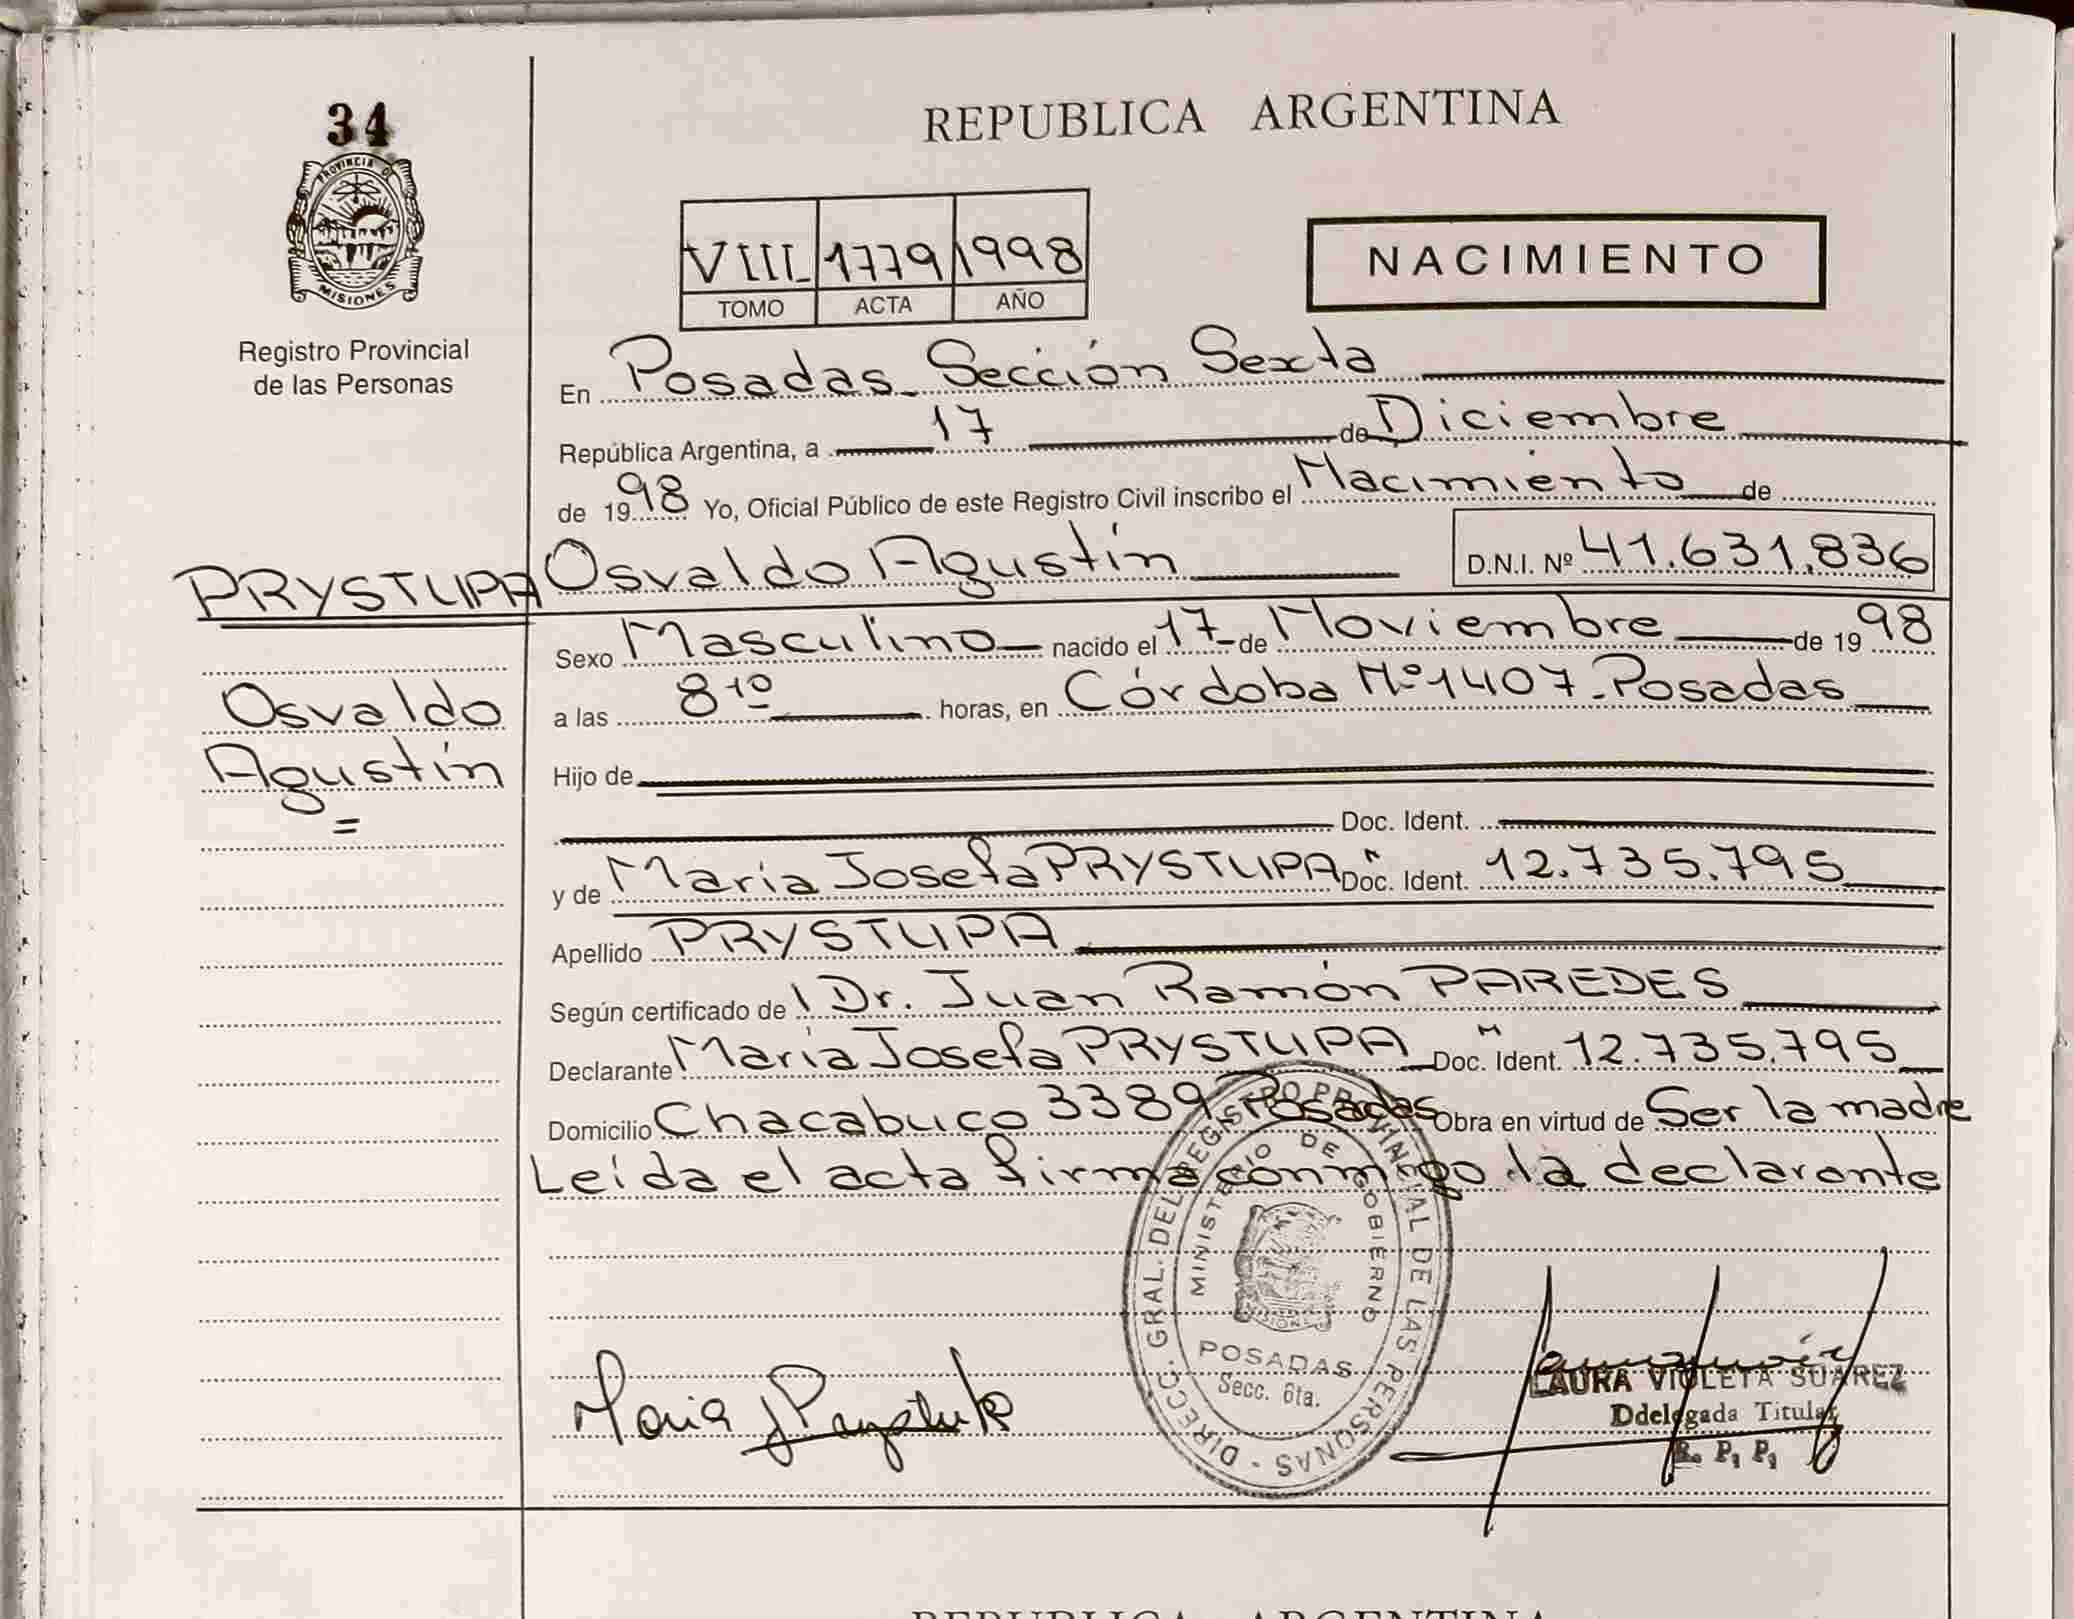 34
PROVINCIA DE
MISIONES
Registro Provincial
de las Personas
REPUBLICA ARGENTINA
VIII 1779 1998
TOMO ACTA AÑO
NACIMIENTO
En Posadas Sección Sexta
República Argentina, a 17 de Diciembre
de 1998 Yo, Oficial Público de este Registro Civil inscribo el Nacimiento de
PRYSTUPA Osvaldo Agustín D.N.I. Nº 41.631.836
Sexo Masculino nacido el 17 de Noviembre de 1998
Osvaldo
Agustín
=
a las 8¹⁰ horas, en Córdoba Nº 1407-Posadas
Hijo de
Doc. Ident.
y de María Josefa PRYSTUPA Doc. Ident. 12.735.795
Apellido PRYSTUPA
Según certificado de Dr. Juan Ramón PAREDES
Declarante María Josefa PRYSTUPA Doc. Ident. 12.735.795
Domicilio Chacabuco 3389 Posadas Obra en virtud de Ser la madre
Leída el acta firma conmigo la declarante
DIRECC. GRAL. DEL REGISTRO PROVINCIAL DE LAS PERSONAS
MINISTERIO DE GOBIERNO
MISIONES
POSADAS
Secc. 6ta.
Maria J Prystupa
LAURA VIOLETA SUAREZ
Ddelegada Titular
R. P. P.
REPUBLICA ARGENTINA